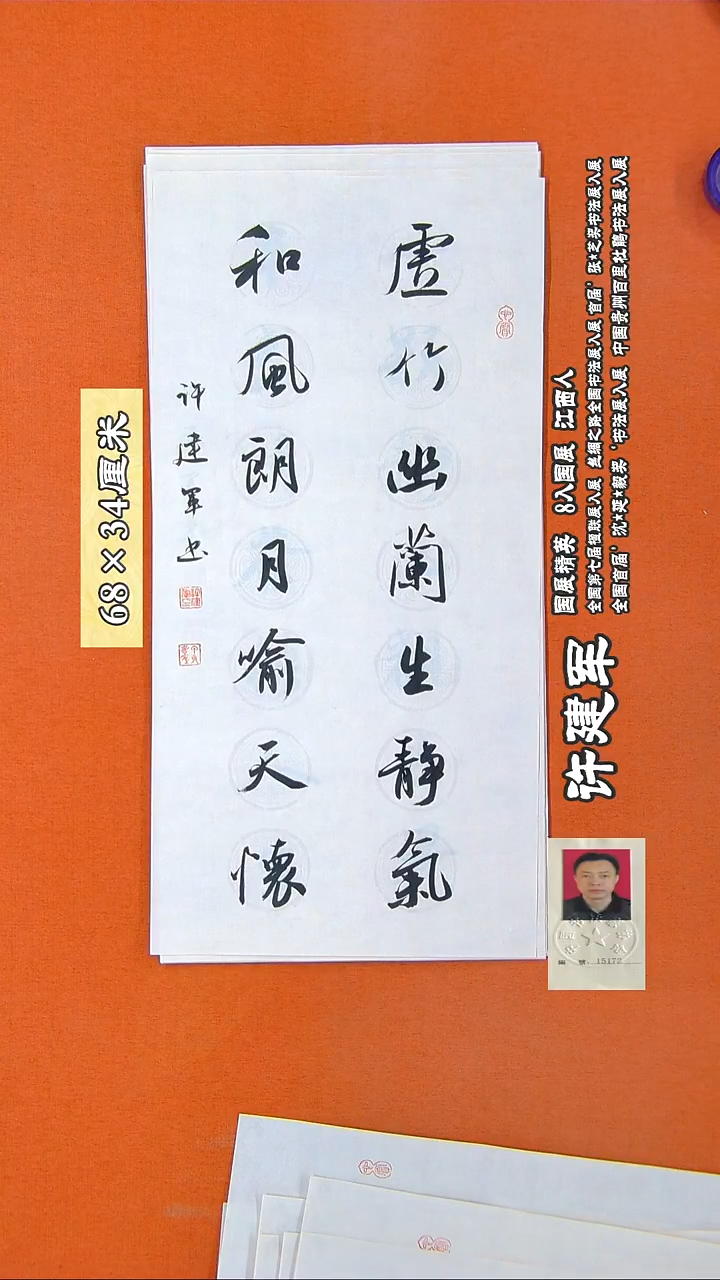 虚竹幽蘭生静氣
和風朗月喻天懷
许建军书
68×34厘米
国展精英 8入国展 江西人
全国第七届楹联展入展 丝绸之路全国书法展入展 首届’张★芝奖书法展入展
全国首届’沈★延★毅奖‘书法展入展 中国贵州百里杜鹃书法展入展
许建军
编 号:15172